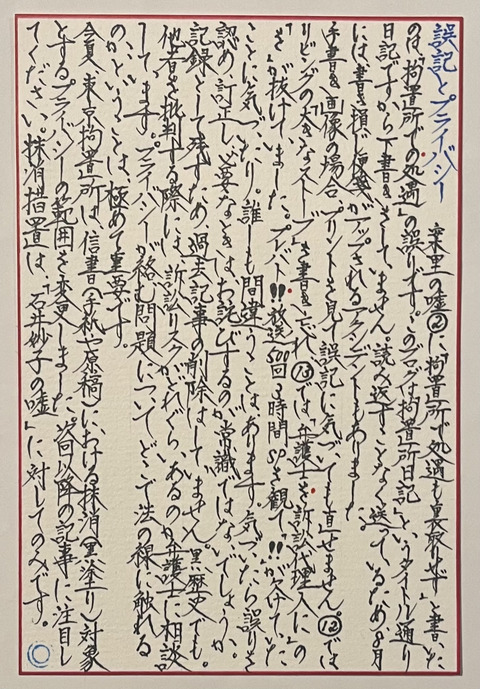 誤記とプライバシー　棄里の嘘②に「拘置所で処遇も裏取りせず」と書いた
のは「拘置所での処遇」の誤りです。このブログは拘置所日記というタイトル通り
日記ですから下書きさえしていません。読み返すことなく送っているため8月
には書き損じ便箋がアップされるアクシデントもありました。
手書き画像の場合、プリントを見て誤記に気づいても直せません。⑫では
リビングの大きなストーブ」を書き忘れ、⑬では「弁護士を訴訟代理人に」の
「を」が抜けてました。プレバト‼放送500回3時間SPを観て「‼」が欠けていた
ことに気づいたり。誰しも間違うことはあります。気づいたら誤りを
認め、訂正し、必要なときはお詫びするのが常識ではないでしょうか。
記録として残すため、過去記事の削除はしてません。黒歴史でも。
他者を批判する際には、訴訟リスクがどれぐらいあるのか弁護士に相談
してます。プライバシーが絡む問題について、どこで法の裸に触れる
のか、ということは、極めて重要です。
今夏、東京拘置所は信書（手紙や原稿）における抹消（黒塗り）対象
とするプライバシーの範囲を変更しました。次回以降の記事に注目し
てください。抹消措置は、「石井妙子の嘘」に対してのみです。